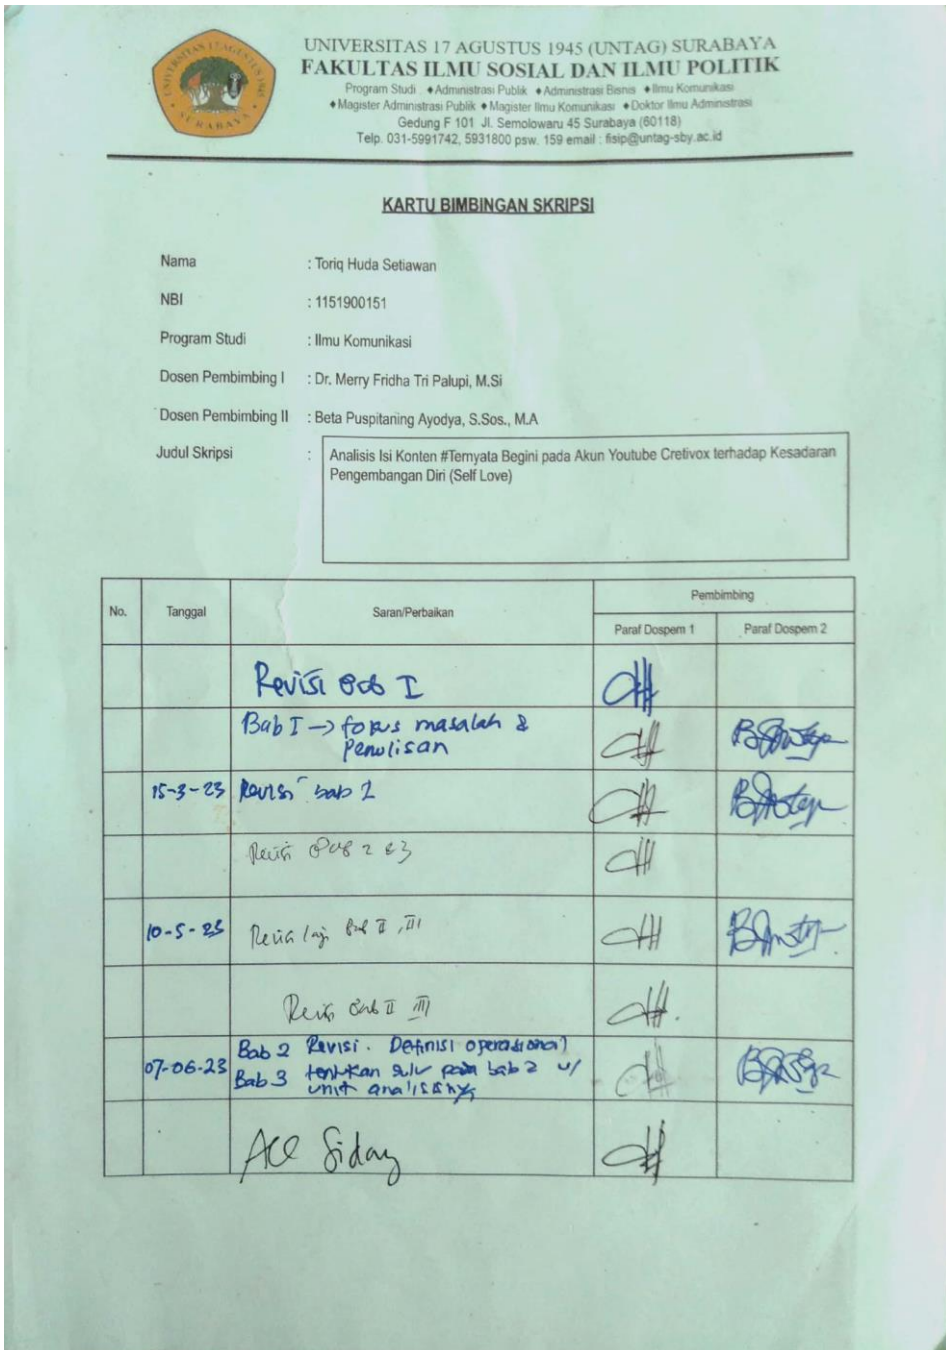 UNIVERSITAS 17 AGUSTUS 1945
SURABAYA
UNIVERSITAS 17 AGUSTUS 1945 (UNTAG) SURABAYA
FAKULTAS ILMU SOSIAL DAN ILMU POLITIK
Program Studi : ♦Administrasi Publik ♦Administrasi Bisnis ♦Ilmu Komunikasi
♦Magister Administrasi Publik ♦Magister Ilmu Komunikasi ♦Doktor Ilmu Administrasi
Gedung F 101 Jl. Semolowaru 45 Surabaya (60118)
Telp. 031-5991742, 5931800 psw. 159 email : fisip@untag-sby.ac.id
KARTU BIMBINGAN SKRIPSI
Nama : Toriq Huda Setiawan
NBI : 1151900151
Program Studi : Ilmu Komunikasi
Dosen Pembimbing I : Dr. Merry Fridha Tri Palupi, M.Si
Dosen Pembimbing II : Beta Puspitaning Ayodya, S.Sos., M.A
Judul Skripsi : Analisis Isi Konten #Ternyata Begini pada Akun Youtube Cretivox terhadap Kesadaran
Pengembangan Diri (Self Love)
No. Tanggal Saran/Perbaikan Pembimbing
Paraf Dospem 1 Paraf Dospem 2
Revisi Bab I
Bab I → fokus masalah &
Penulisan
15-3-23 Revisi bab 1
Revisi Bab 2 & 3
10-5-23 Revisi lagi Bab II, III
Revisi Bab II III
07-06-23 Bab 2 Revisi. Definisi operasional
Bab 3 tentukan dulu pada bab 2 u/
unit analisisnya
ACC Sidang